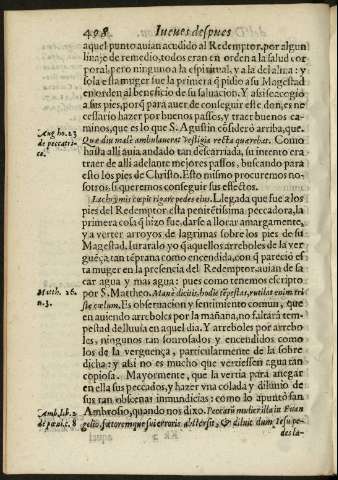 498 Iueues despues
aquel punto auian acudido al Redemptor, por algun
linaje de remedio, todos eran en orden a la salud cor
poral, pero ninguno a la espiritual, y a la del alma: y
sola esta muger fue la primera q̃ pidio a su Magestad
en orden al beneficio de su saluacion. Y assi se acogio
a sus pies, porq̃ para auer de conseguir este don, es ne
cessario hazer por buenos passos, y traer buenos ca-
minos, que es lo que S. Agustin cõsiderò arriba, que.
Aug. ho. 23
de peccatri-
ce.
Quæ diu malè ambulauerat vestigia recta quærebat. Como
hasta alli auia andado tan descarriada, su intento era
traer de alli adelante mejores passos, buscando para
esto los pies de Christo. Esto mismo procuremos no-
sotros, si queremos conseguir sus effectos.
Lachrymis cœpit rigare pedes eius. Llegada que fue a los
pies del Redemptor esta penitẽtissima peccadora, la
primera cosa q̃ hizo fue, darse a llorar amargamente,
y a verter arroyos de lagrimas sobre los pies de su
Magestad, luraralo yo q̃ aquellos arreboles de la ver-
guẽça, tan tẽprana como encendida, con q̃ parecio es
ta muger en la presencia del Redemptor, auian de sa
car agua y mas agua: pues como tenemos escripto
Matth. 16.
n. 3.
por S. Mattheo. Manè dicitis, hodie tẽpestas, rutilat enim tri
ste cœlum. Es obseruacion y sentimiento comun, que
en auiendo arreboles por la mañana, no faltarà tem-
pestad de lluuia en aquel dia. Y arreboles por arrebo
les, ningunos tan sonrosados y encendidos como
los de la verguença, particularmente de la sobre
dicha: y assi no es mucho que vertiessen agua tan
copiosa. Mayormente, que la vertia para anegar
en ella sus peccados, y hazer vna colada y diluuio de
sus tan obscenas inmundicias: como lo apuntò san
Amb. lib. 2
de pœni. c. 8
Ambrosio, quando nos dixo. Peccatrix mulier illa in Euan
gelio, fœtoremque sui erroris abstersit, & diluit dum Iesu pe-
des la-